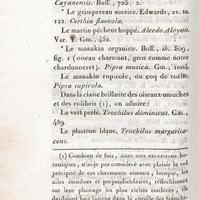 Cayanensis. Buff., 725, 2.
Le grimpereau sucrier. Edwards, av. ta.
122. Certhia flaveola.
Le martin pêcheur huppé. Alcedo Alcyon.
Var. Gm., 452.
Le manakin organiste. Buff., ill. 809,
fig. 1 (oiseau charmant, gros comme notre
chardonneret). Pipra musica. Gm., 1004.
Le manakin rupicole, ou coq de roche.
Pipra rupicola.
Dans la classe brillante des oiseaux-mouches
et des colibris (1), on admire:
Le vert perlé. Trochilus dominicus. Gm.,
489.
Le plastron blanc. Trochilus margarita-
ceus.
(1) Combien de fois, dans mes excursions bo-
taniques, n'ai-je pas considéré avec le
précipité de ces charmants oiseaux, lorsque, les
ailes étendues et perpendiculaires, réfléchissant
sur leur plumage les plus riches couleurs, ils
dardaient leur langue dans la corolle des franchi-